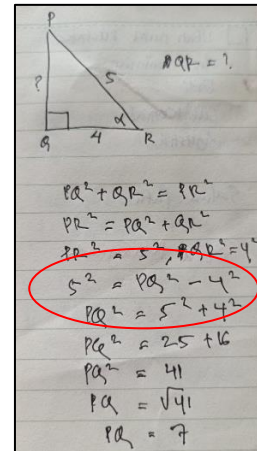 P
?
5
PQR = ?
α
Q
4
R
PQ² + QR² = PR²
PR² = PQ² + QR²
PR² = 5², QR² = 4²
5² = PQ² - 4²
PQ² = 5² + 4²
PQ² = 25 + 16
PQ² = 41
PQ = √41
PQ = 7